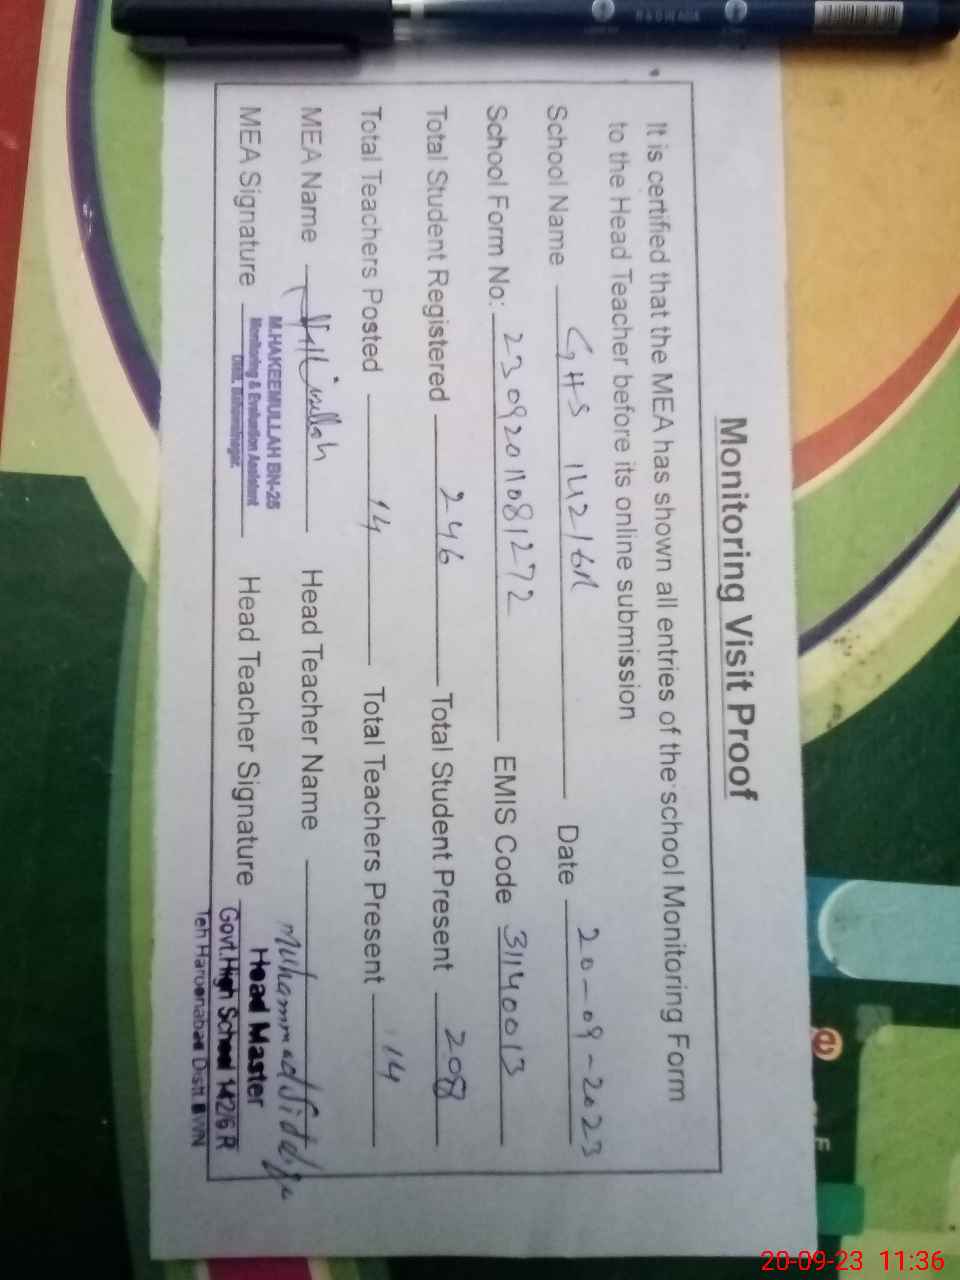 Monitoring Visit Proof
It is certified that the MEA has shown all entries of the school Monitoring Form
to the Head Teacher before its online submission
School Name GHS 142/6R Date 20-09-2023
School Form No: 23092011081272 EMIS Code 31140013
Total Student Registered 246 Total Student Present 208
Total Teachers Posted 14 Total Teachers Present 14
MEA Name Head Teacher Name Muhammad
M.HAKEEMULLAH BN-25
Monitoring & Evaluation Assistant
Distt. Bahawalnagar.
MEA Signature Head Teacher Signature
Head Master
Govt.High School 142/6 R
Teh Haroonabad Distt. BWN
20-09-23 11:36